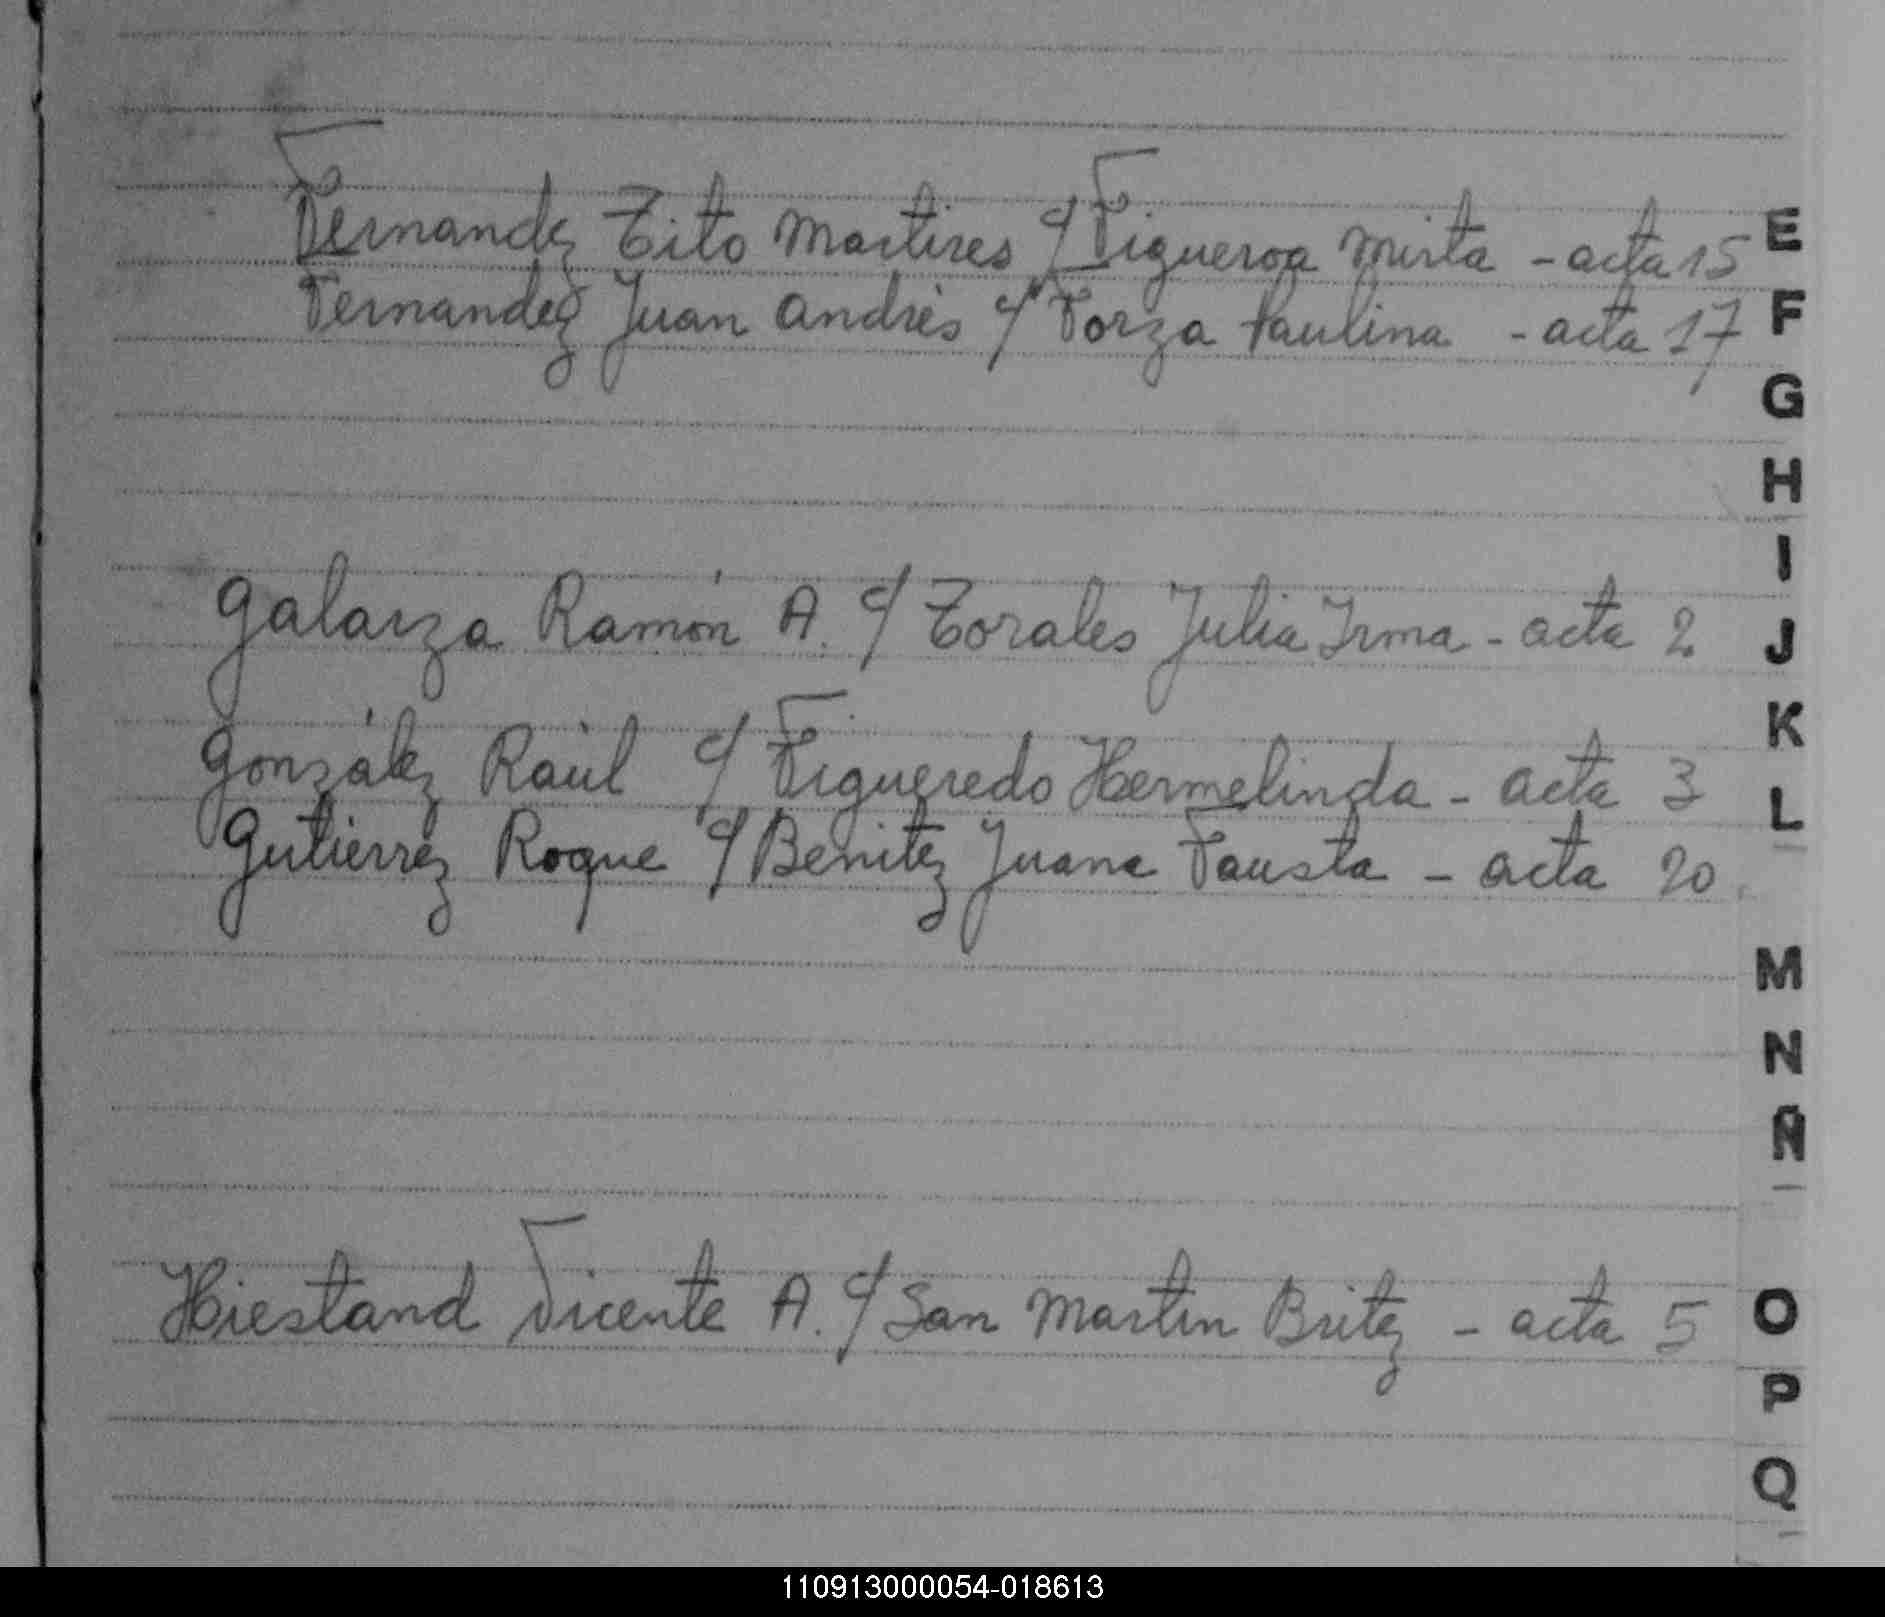 Fernandez Tito Martires c/ Figueroa Mirta - acta 15
Fernandez Juan Andrés c/ Forza Paulina - acta 17
Galarza Ramón A. c/ Torales Julia Irma - acta 2
González Raúl c/ Figueredo Hermelinda - acta 3
Gutiérrez Roque c/ Benitez Juana Fausta - acta 20
Hiestand Vicente A. c/ San Martin Britez - acta 5
E
F
G
H
I
J
K
L
M
N
Ñ
O
P
Q
110913000054-018613